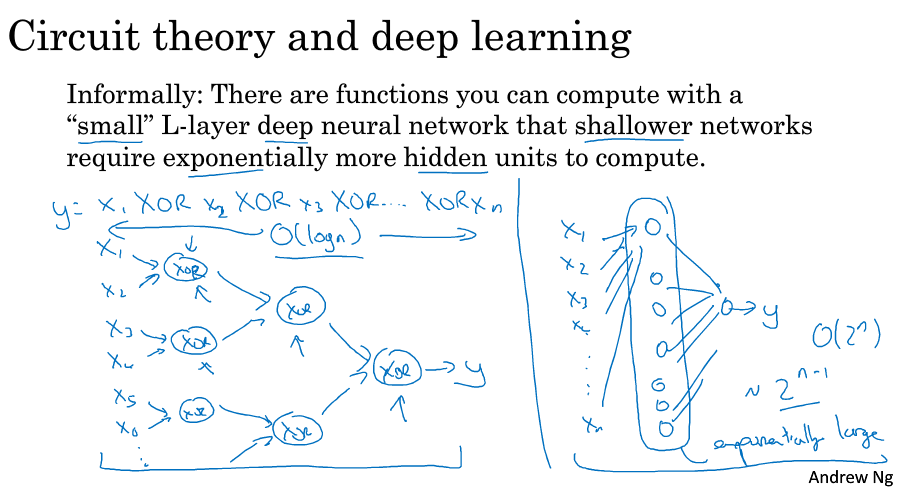 Circuit theory and deep learning
Informally: There are functions you can compute with a
“small” L-layer deep neural network that shallower networks
require exponentially more hidden units to compute.
y= x₁ XOR x₂ XOR x₃ XOR.... XOR xₙ
O(log n)
x₁
XOR
x₂
XOR
x₃
XOR
x₄
XOR → y
x₅
XOR
x₆
XOR
x₁
x₂
x₃
x₄
xₙ
→ y
O(2ⁿ)
~ 2ⁿ⁻¹
exponentially large
Andrew Ng